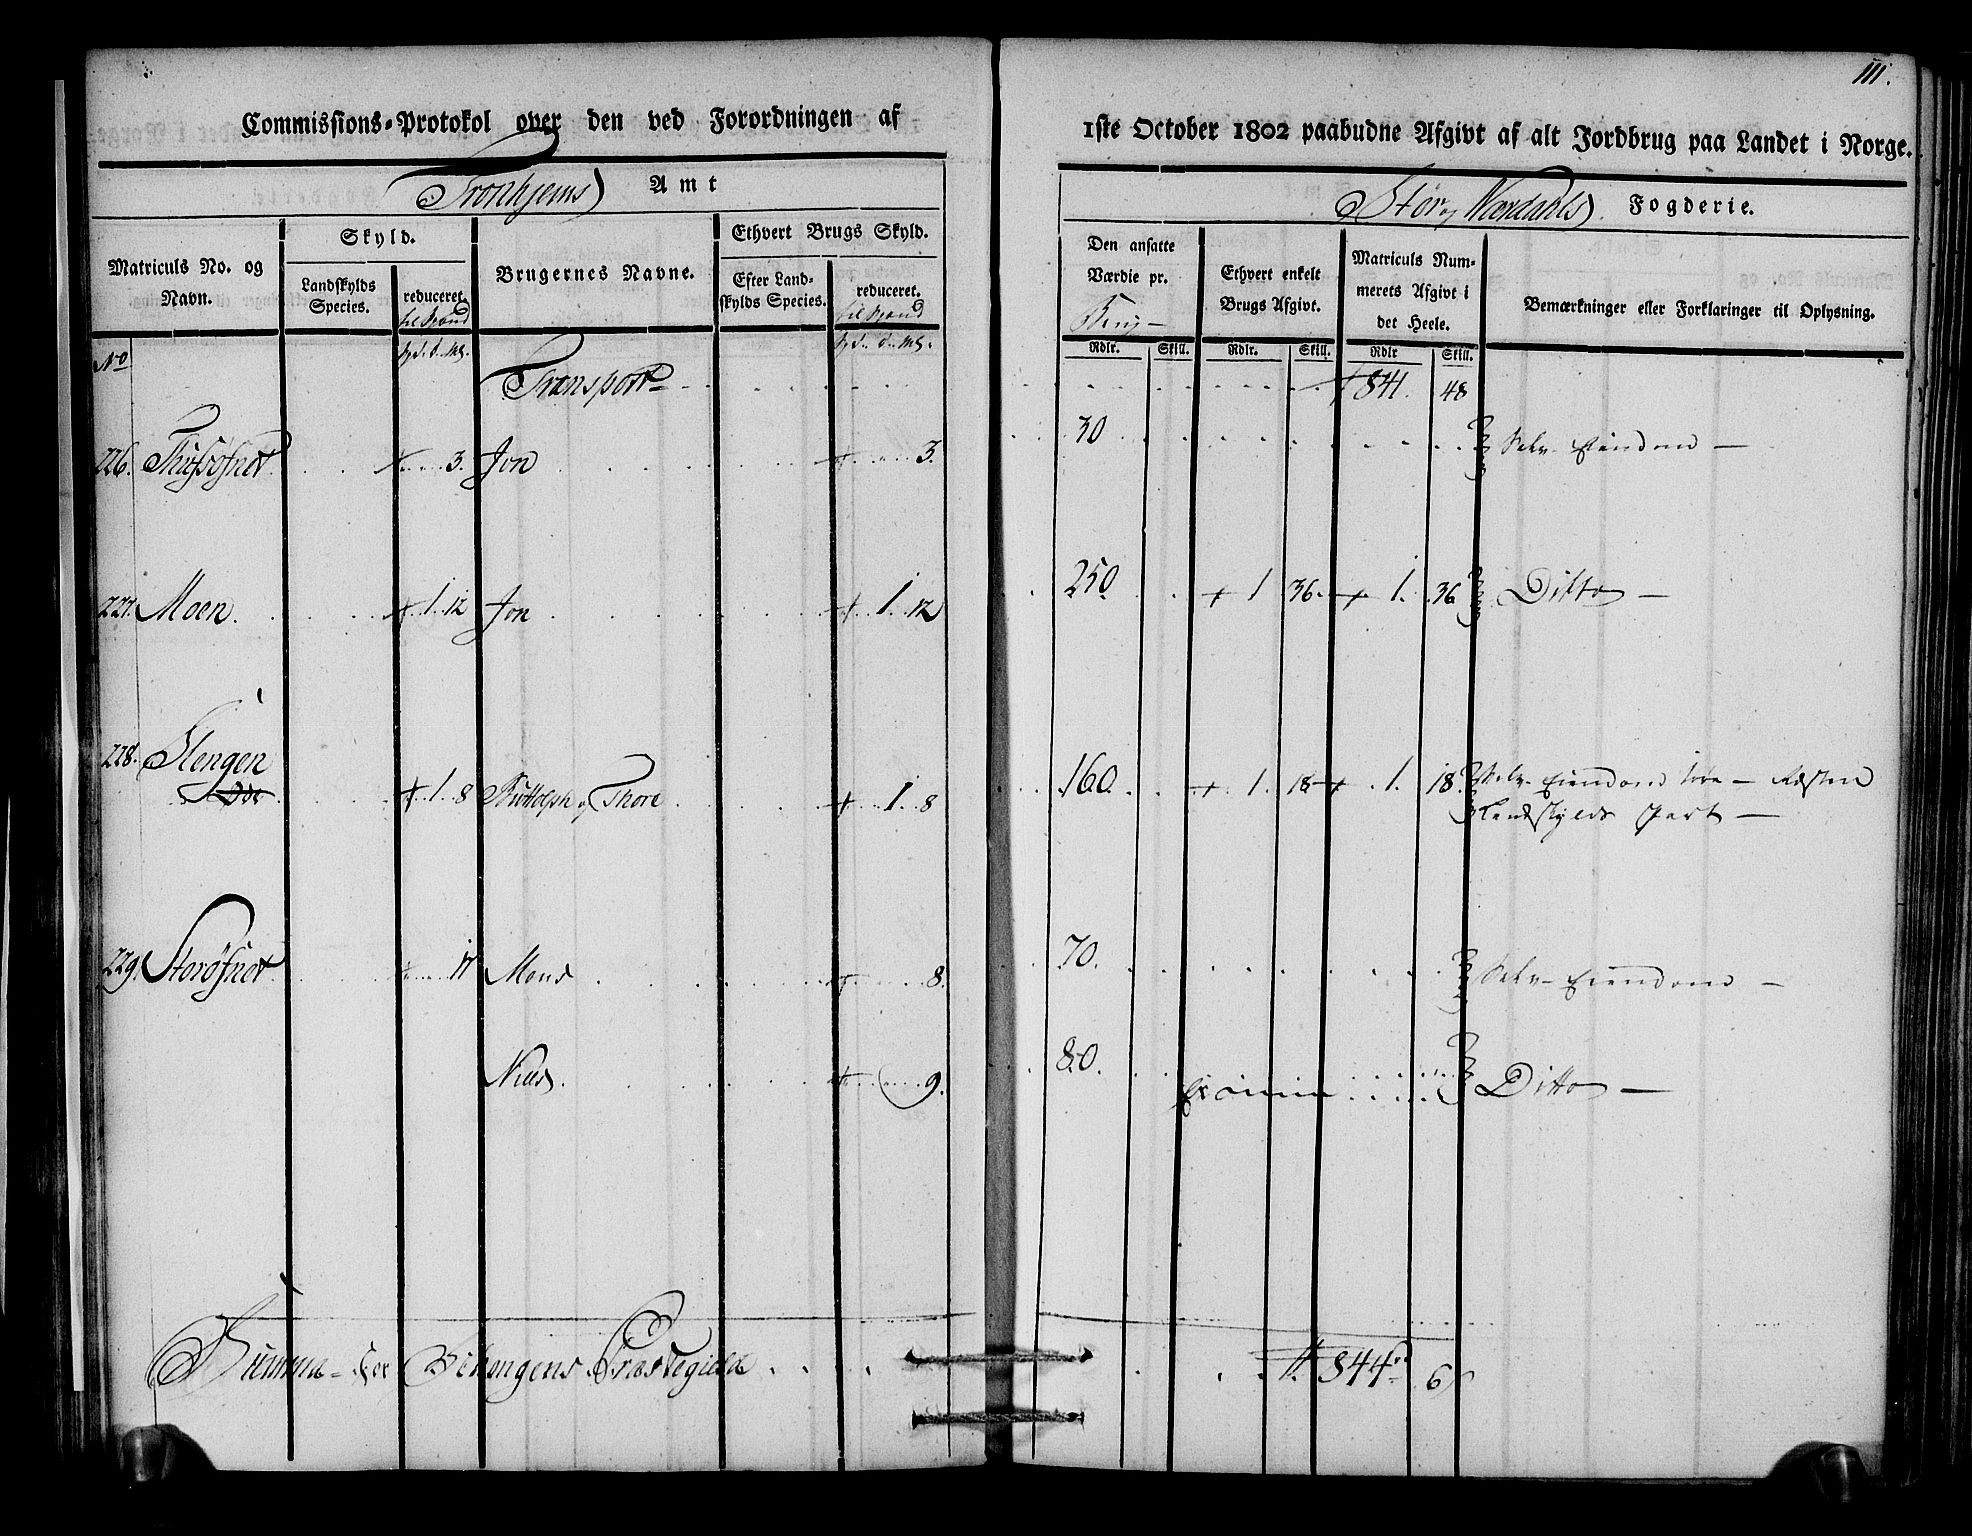 111.
Commissions-Protokol over den ved Forordningen af
1ste October 1802 paabudne Afgivt af alt Jordbrug paa Landet i Norge.
Tronhjems Amt
Stør og Værdahls Fogderie.
Matriculs No. og Navn.
Skyld.
Landskylds Species.
reduceret.
Brugernes Navne.
Ethvert Brugs Skyld.
Efter Landskylds Species.
reduceret.
Den ansatte Værdie pr.
Ethvert enkelt Brugs Afgivt.
Matriculs Nummerets Afgivt i det Heele.
Bemærkninger eller Forklaringer til Oplysning.
No
Rdlr. Skill. Rdlr. Skill. Rdlr Skill.
Transport 841. 48
226. 3. Jon 3. 30 Selv Eiendom —
227. Moen 1. 12 Jon 1. 12 250. 1 36. 1. 36 Ditto —
228. Stengen 1. 8 Buttolph og Thore 1. 8 160. 1. 18 1. 18 Selv Eiendom
Landskylds Part —
229. Storøsnet 17 Mons 8. 70. Selv Eiendom —
Niels 9. 80. Ditto —
Summa for Præstegield 844 6